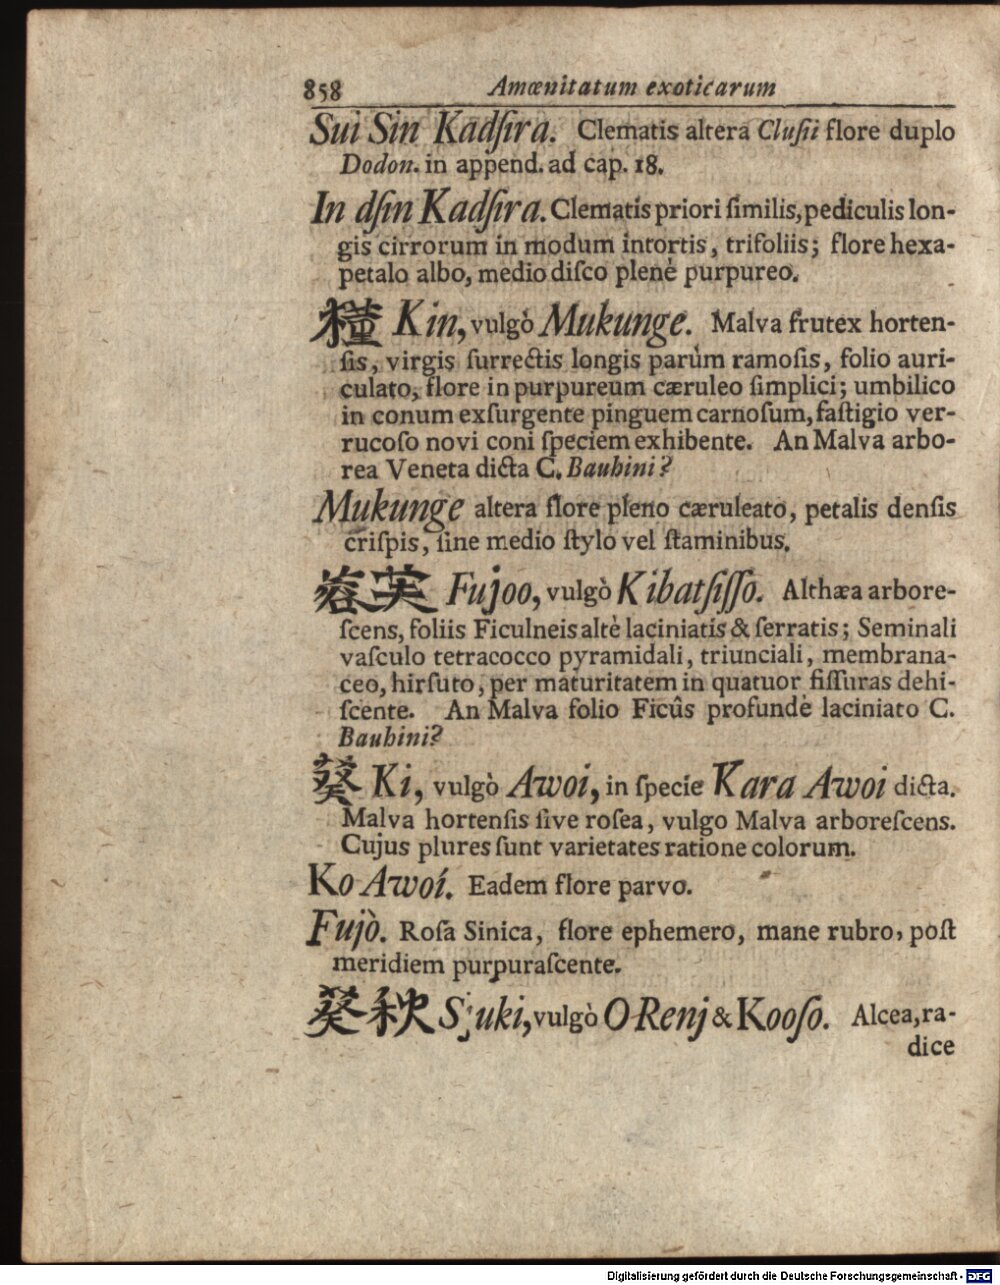 858 Amœnitatum exoticarum
Sui Sin Kadſira. Clematis altera Cluſii flore duplo
Dodon. in append. ad cap. 18.
In dſin Kadſira. Clematis priori ſimilis, pediculis lon-
gis cirrorum in modum intortis, trifoliis; flore hexa-
petalo albo, medio diſco plenè purpureo.
槿 Kin, vulgò Mukunge. Malva frutex horten-
ſis, virgis ſurrectis longis parùm ramoſis, folio auri-
culato, flore in purpureum cæruleo ſimplici; umbilico
in conum exſurgente pinguem carnoſum, faſtigio ver-
rucoſo novi coni ſpeciem exhibente. An Malva arbo-
rea Veneta dicta C. Bauhini?
Mukunge altera flore pleno cæruleato, petalis denſis
criſpis, ſine medio ſtylo vel ſtaminibus.
蓉芙 Fujoo, vulgò Kibatſiſſo. Althæa arbore-
ſcens, foliis Ficulneis altè laciniatis & ſerratis; Seminali
vaſculo tetracocco pyramidali, triunciali, membrana-
ceo, hirſuto, per maturitatem in quatuor fiſſuras dehi-
ſcente. An Malva folio Ficûs profundè laciniato C.
Bauhini?
葵 Ki, vulgò Awoi, in ſpecie Kara Awoi dicta.
Malva hortenſis ſive roſea, vulgo Malva arboreſcens.
Cujus plures ſunt varietates ratione colorum.
Ko Awoí. Eadem flore parvo.
Fujò. Roſa Sinica, flore ephemero, mane rubro, poſt
meridiem purpuraſcente.
葵秧 Sjuki, vulgò O Renj & Kooſo. Alcea, ra-
dice
Digitalisierung gefördert durch die Deutsche Forschungsgemeinschaft - DFG